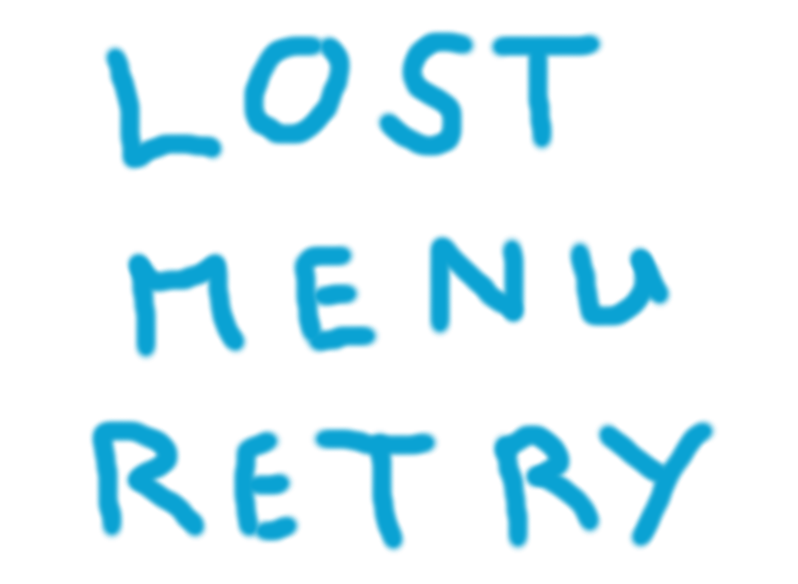 LOST
MENU
RETRY